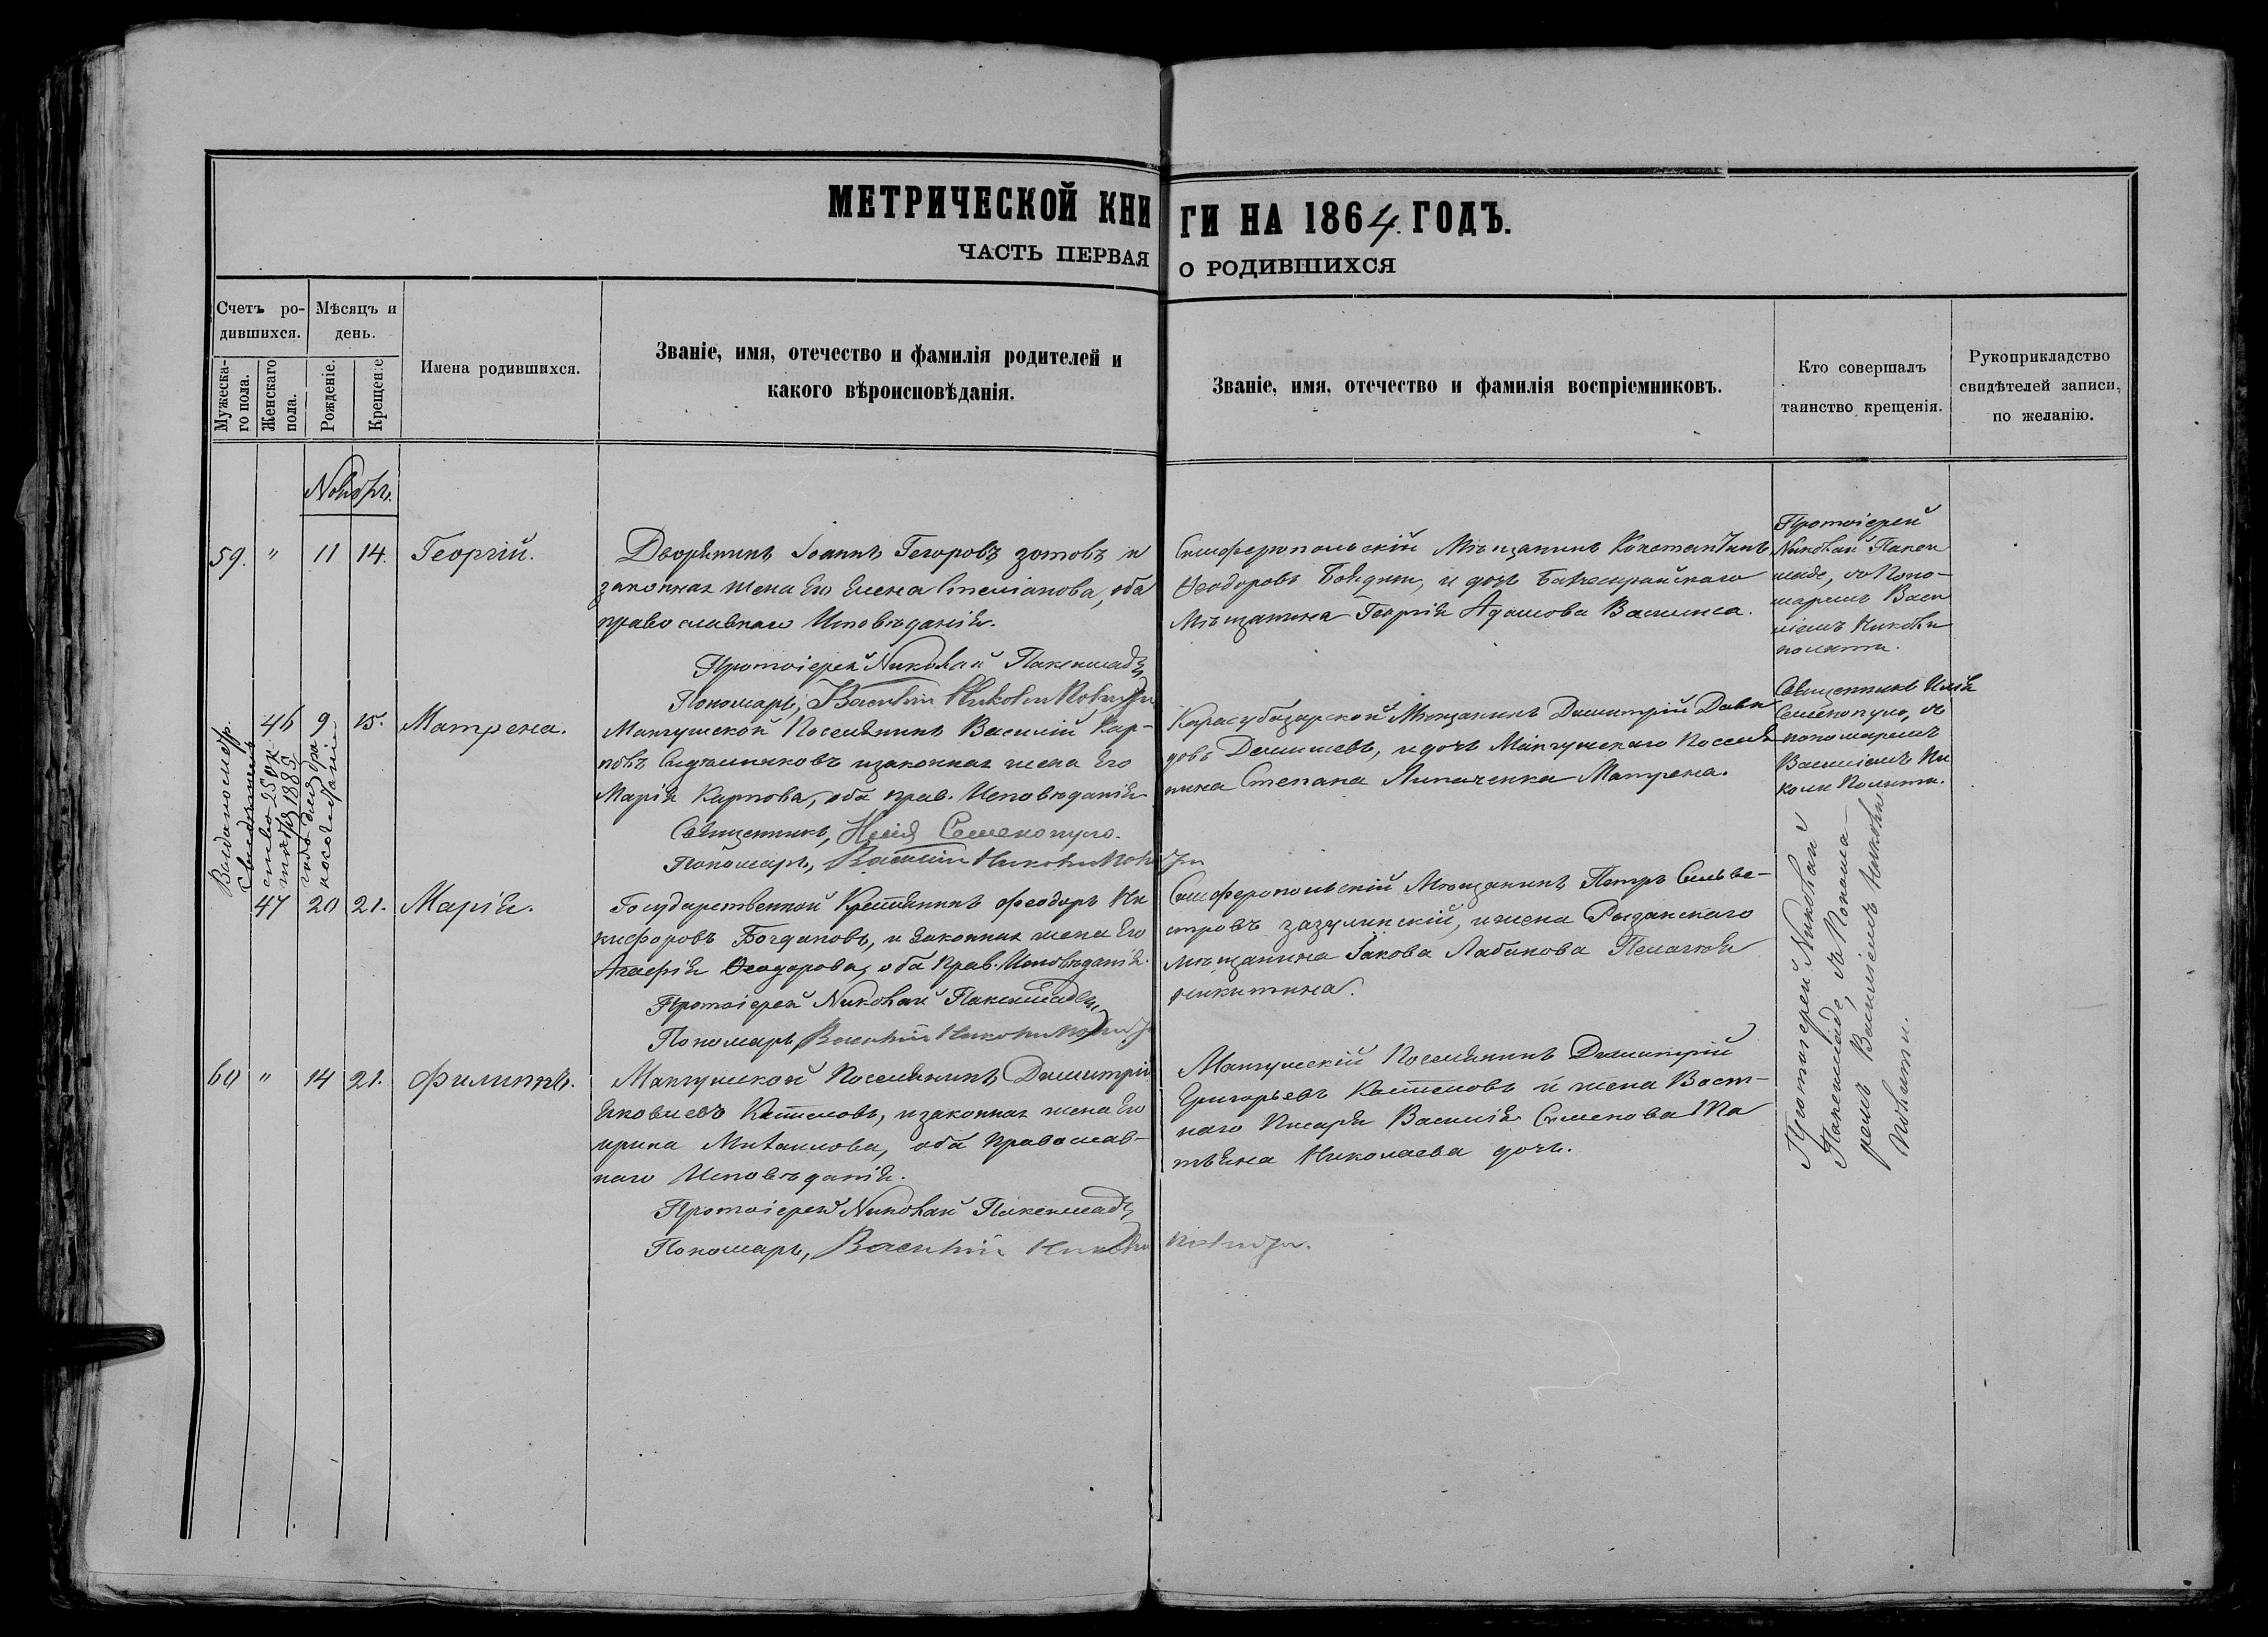 МЕТРИЧЕСКОЙ КНИГИ НА 1864. ГОДЪ.
ЧАСТЬ ПЕРВАЯ О РОДИВШИХСЯ
Счетъ ро-
дившихся.
Мужеска-
го пола.
Женскаго
пола.
Мѣсяцъ и
день.
Рожденіе.
Крещеніе
Имена родившихся.
Званіе, имя, отечество и фамилія родителей и
какого вѣроисповѣданія.
Званіе, имя, отечество и фамилія воспріемниковъ.
Кто совершалъ
таинство крещенія.
Рукоприкладство
свидѣтелей записи,
по желанію.
Ноябрь.
59. " 11 14. Георгій.
Дворянинъ Іоаннъ Егоровъ Зотовъ и
законная жена его Елена Стеліанова, оба
православнаго Исповѣданія.
Протоіерей Николай
Пономарь, Василій
Симферопольскій Мѣщанинъ Константинъ
Ѳеодоровъ и дочь Бахчисарайскаго
Мѣщанина Георгія Адамова Василиса.
Протоіерей
Николай
съ Поно-
маремъ Васи
ліемъ Николи
полити.
46 9. 15. Матрена.
Мангушской Поселянинъ Василій Кар-
повъ и законная жена его
Марія Карпова, оба прав. Исповѣданія
Священникъ, Илія Семенопуло.
Пономарь, Василій
Карасубазарской Мѣщанинъ Димитрій Дави
довъ и дочь Мангушскаго Поселя
нина Степана Липаченка Матрена.
Священникъ Илія
Семенопуло, съ
пономаремъ
Василіемъ Ни
коли Полити.
Выдано метр.
Свидѣтельство
25 ок
тября 188
года
47 20 21. Марія.
Государственной Крестьянинъ Феодоръ Ни
кифоровъ Богдановъ, и законная жена его
Агафія Ѳеодорова, оба прав. Исповѣданія.
Протоіерей Николай
Пономарь, Василій
Симферопольскій Мѣщанинъ Петръ Сильве-
стровъ Зазулинскій, и жена Рязанскаго
мѣщанина Іакова Лабанова Пелагія
Никитина.
60 " 14 21. Филиппъ.
Мангушской Поселянинъ Димитрій
Яковлевъ и законная жена его
Ирина Михаилова, оба православ-
наго Исповѣданія.
Протоіерей Николай
Пономарь, Василій Николи Полити.
Мангушскій Поселянинъ Димитрій
Григорьевъ и жена
наго Писаря Василія Семенова Та
тіана Николаева дочь.
Протоіерей Николай
съ Понома-
ремъ Василіемъ Николи
Полити.